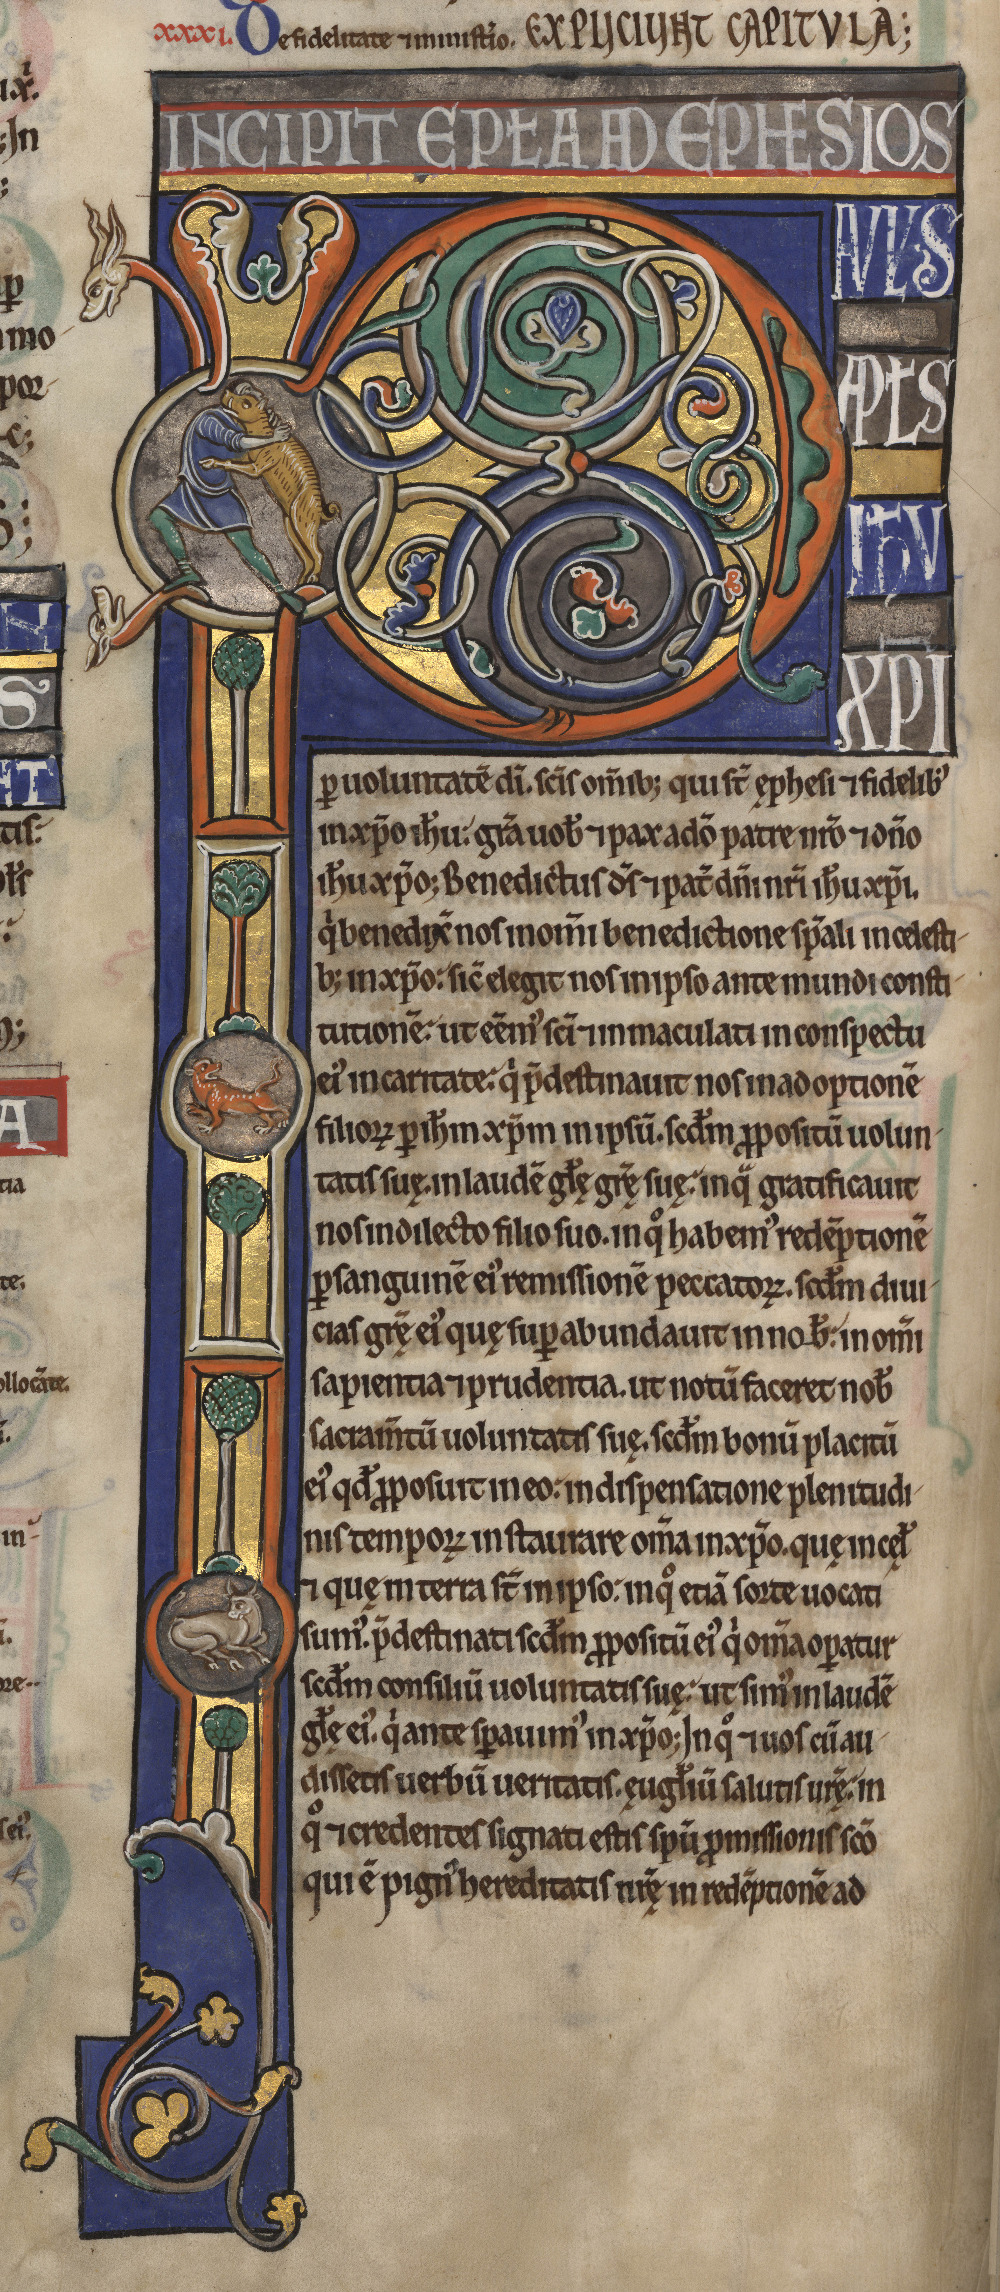 xxxi. De fidelitate ⁊ ministr̄io. EXPLICIUNT CAPITVLA;
INCIPIT EPŁA AD EPHESIOS
P
AVLVS
APŁS
IHV
XPI
ꝑ uoluntatē dī. sc̄is om̄ib; qui st̄ ęphesi ⁊ fidelib'
in xp̄o ih̄u: gr̄a uob̄ ⁊ pax a dō patre nr̄o ⁊ dn̄o
ih̄u xp̄o; Benedictus d̄s ⁊ pat̄ dn̄i nr̄i ih̄u xp̄i.
q̇ benedix̄ nos in om̄i benedictione sp̄ali in celesti-
b; in xp̄o: sic̄ elegit nos in ipso ante mundi consti-
tutionē: ut eēm' sc̄i ⁊ immaculati in conspectu
ei' in caritate: q̇ p̄destinauit nos in adoptionē
filioꝝ ꝑ ih̄m xp̄m in ipsū. scd̄m ꝓpositū uolun-
tatis suę. in laudē gl̄ę gr̄ę suę: in q̄ gratificauit
nos in dilecto filio suo. in qͦ habem' redēptionē
ꝑ sanguinē ei' remissionē peccatoꝝ. scd̄m diui-
cias gr̄ę ei' quę suꝑabundauit in nob̄: in om̄i
sapientia ⁊ prudentia. ut notū faceret nob̄
sacram̄tū uoluntatis suę. scd̄m bonū placitū
ei' qd̄ ꝓposuit in eo: in dispensatione plenitudi-
nis tempoꝝ instaurare om̄a in xp̄o. quę in cęl̄
⁊ quę in terra st̄ in ipso: in qͦ etiā sorte uocati
sum'. p̄destinati scd̄m ꝓpositū ei' q̇ om̄a oꝑatur
scd̄m consiliū uoluntatis suę: ut sim' in laudē
gl̄ę ei'. q̇ ante sꝑauim' in xp̄o; In qͦ ⁊ uos cū au-
dissetis uerbū ueritatis. ęugl̄iū salutis ur̄ę: in
qͦ ⁊ credentes signati estis spū ꝓmissionis scō
qui ē pign' hereditatis nr̄ę in redēptionē ad